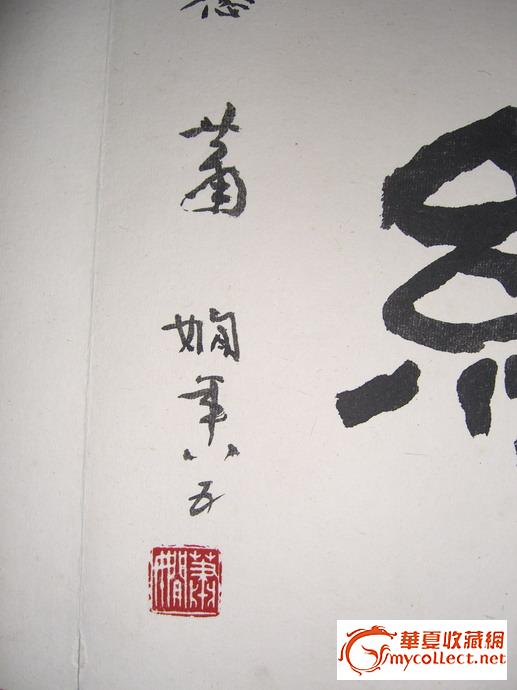 蕭
嫻年八五
蕭嫻
華夏收藏網
mycollect.net